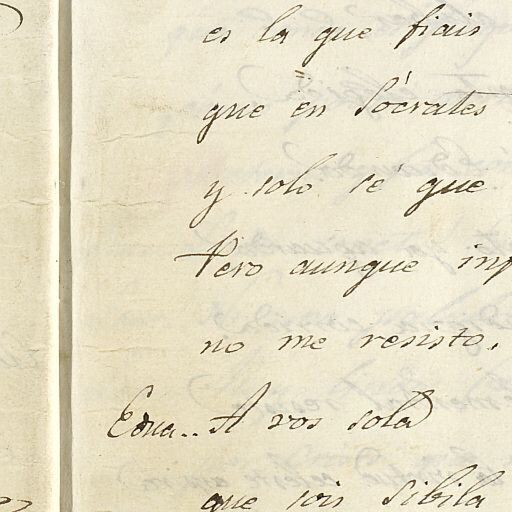 es la que fiais
que en Sócrates
y solo sé que
Pero aunque
no me resisto,
A vos sola
que sois Sibila